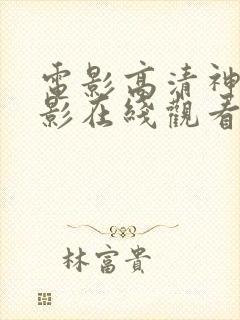 電影高清神
影在綫觀看
林富貴